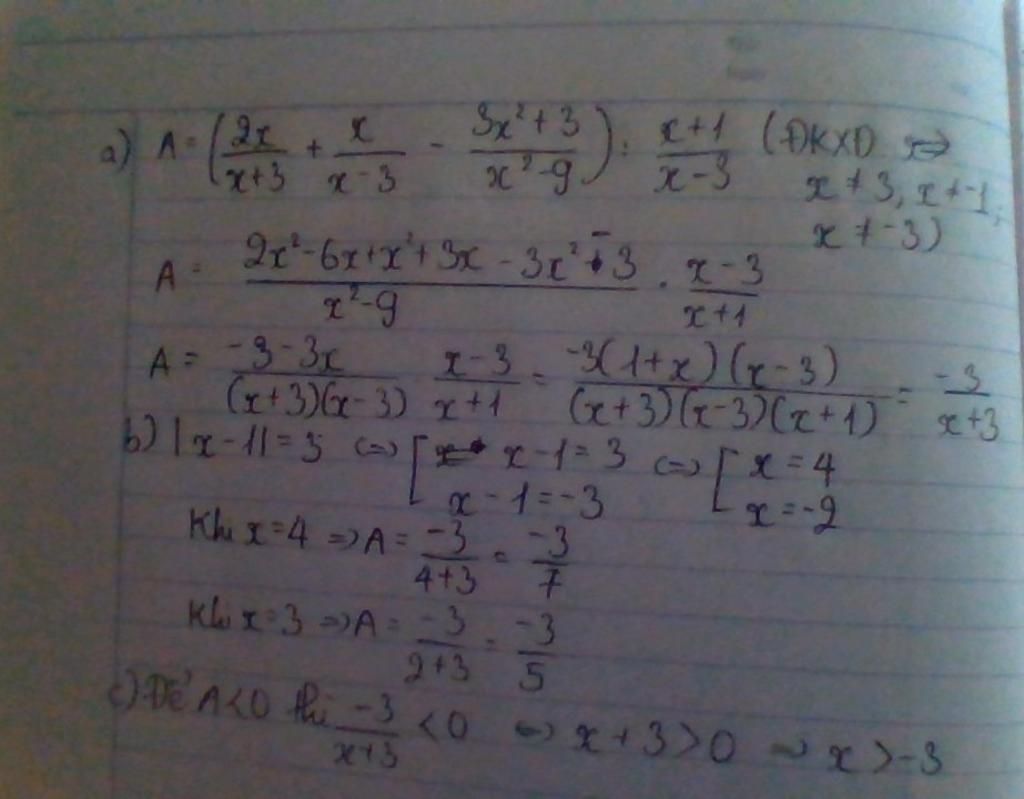 a) A = (2x/(x+3) + x/(x-3) - (3x²+3)/(x²-9)) : (x+1)/(x-3) (ĐKXĐ ⇔
x ≠ 3, x ≠ -1,
x ≠ -3)
A = (2x²-6x+x²+3x-3x²-3)/(x²-9) . (x-3)/(x+1)
A = (-3-3x)/((x+3)(x-3)) (x-3)/(x+1) = (-3(1+x)(x-3))/((x+3)(x-3)(x+1)) = -3/(x+3)
b) |x-1| = 3 ⇔ [ x-1=3 ⇔ [ x=4
x-1=-3 x=-2
Khi x=4 ⇒ A = -3/(4+3) = -3/7
Khi x=3 ⇒ A = -3/(2+3) = -3/5
c) Để A<0 thì -3/(x+3) < 0 ⇔ x+3>0 ⇔ x>-3